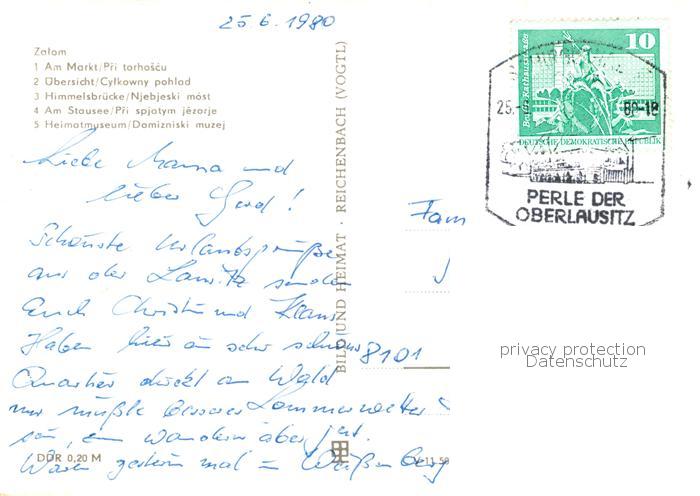 25.6.1980
Załom
1 Am Markt/Při torhošću
2 Übersicht/Cyłkowny pohlad
3 Himmelsbrücke/Njebjeski móst
4 Am Stausee/Při spjatym jězorje
5 Heimatmuseum/Domizniski muzej
Liebe Mama und
lieber Gerd!
Schönste Urlaubsgrüße
aus der Lausitz senden
Euch Christa und Klaus
Haben hier ein sehr schönes
Quartier direkt am Wald
nur müßte besseres Sommerwetter
sein, zum wandern aber gut.
Waren gestern mal in Weißenberg
DDR 0,20 M
BILD UND HEIMAT · REICHENBACH (VOGTL)
V 11 50
Fam
8101
10
DEUTSCHE DEMOKRATISCHE REPUBLIK
25.-
80-18
PERLE DER
OBERLAUSITZ
privacy protection
Datenschutz